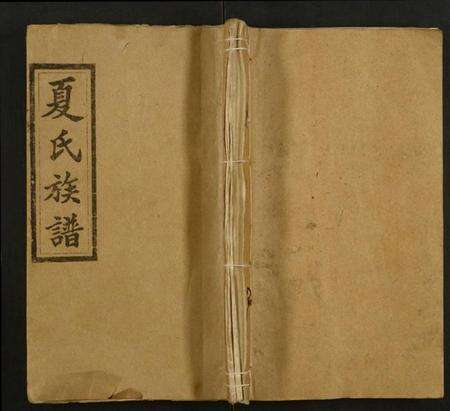 夏氏族譜